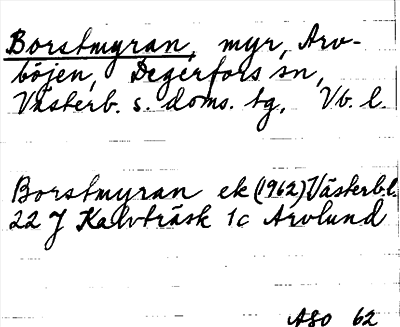 Borstmyran, myr, Arv-
böjen, Degerfors sn,
Västerb. s. doms. tg. Vb. l.
Borstmyran ek (1962) Västerb.l.
22 J Kalvträsk 1c Arvlund
ASO 62